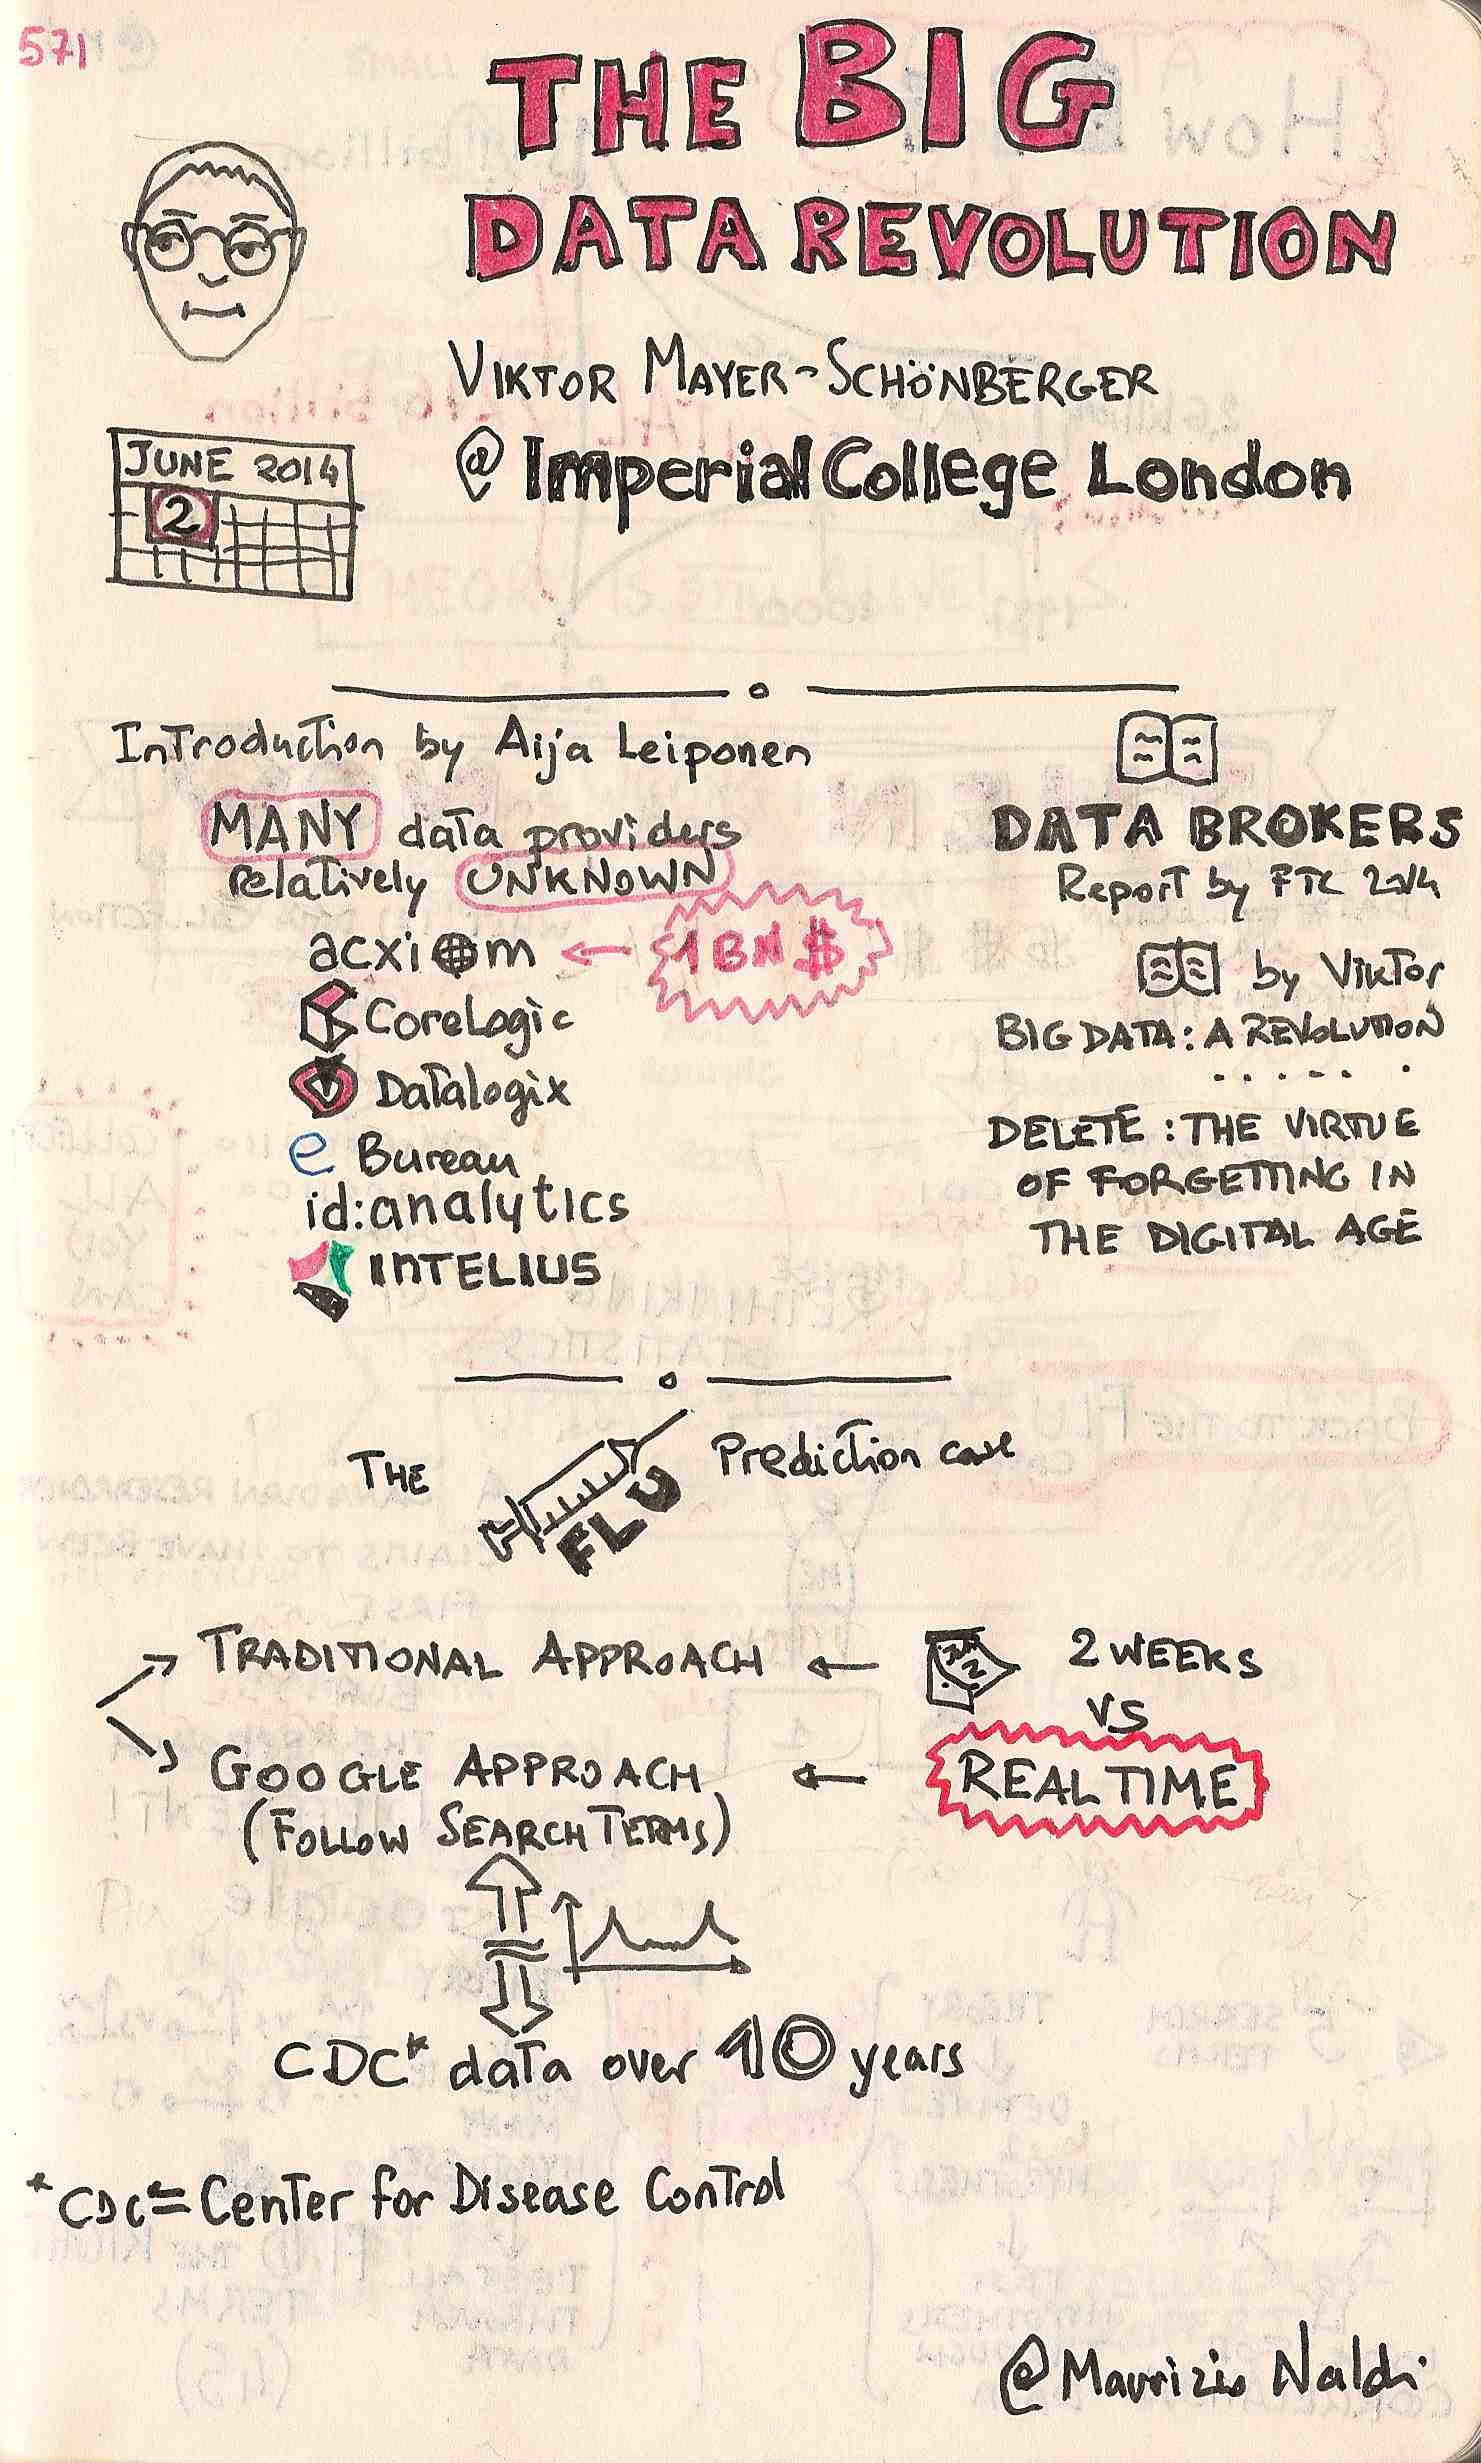 571
THE BIG
DATA REVOLUTION
VIKTOR MAYER-SCHÖNBERGER
@ Imperial College London
JUNE 2014
2
Introduction by Aija Leiponen
MANY data providers
relatively UNKNOWN
acxiom ← 1 BN $
CoreLogic
Datalogix
e Bureau
id:analytics
INTELIUS
DATA BROKERS
Report by FTC 2014
by Viktor
BIG DATA: A REVOLUTION
. . . . . .
DELETE: THE VIRTUE
OF FORGETTING IN
THE DIGITAL AGE
THE FLU Prediction case
TRADITIONAL APPROACH ← 2 WEEKS
VS
GOOGLE APPROACH ← REAL TIME
(FOLLOW SEARCH TERMS)
CDC* data over 10 years
*CDC = Center for Disease Control
@Maurizio Naldi